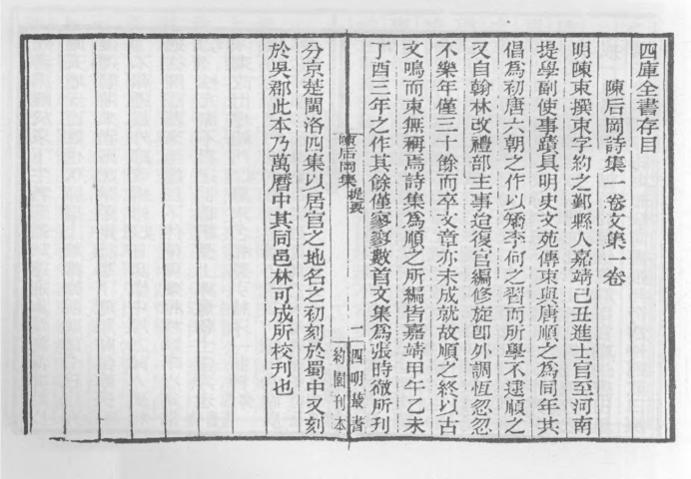 四庫全書存目
陳后岡詩集一卷文集一卷
明陳束撰束字約之鄞縣人嘉靖己丑進士官至河南
提學副使事蹟具明史文苑傳束與唐順之為同年其
倡為初唐六朝之作以矯李何之習而所學不逮順之
又自翰林改禮部主事迨復官編修旋卽外調恆忽忽
不樂年僅三十餘而卒文章亦未成就故順之終以古
文鳴而束無稱焉詩集為順之所編皆嘉靖甲午乙未
丁酉三年之作其餘僅寥寥數首文集為張時徹所刊
陳后岡集 提要
一
四明叢書
約園刊本
分京楚閩洛四集以居官之地名之初刻於蜀中又刻
於吳郡此本乃萬曆中其同邑林可成所校刊也